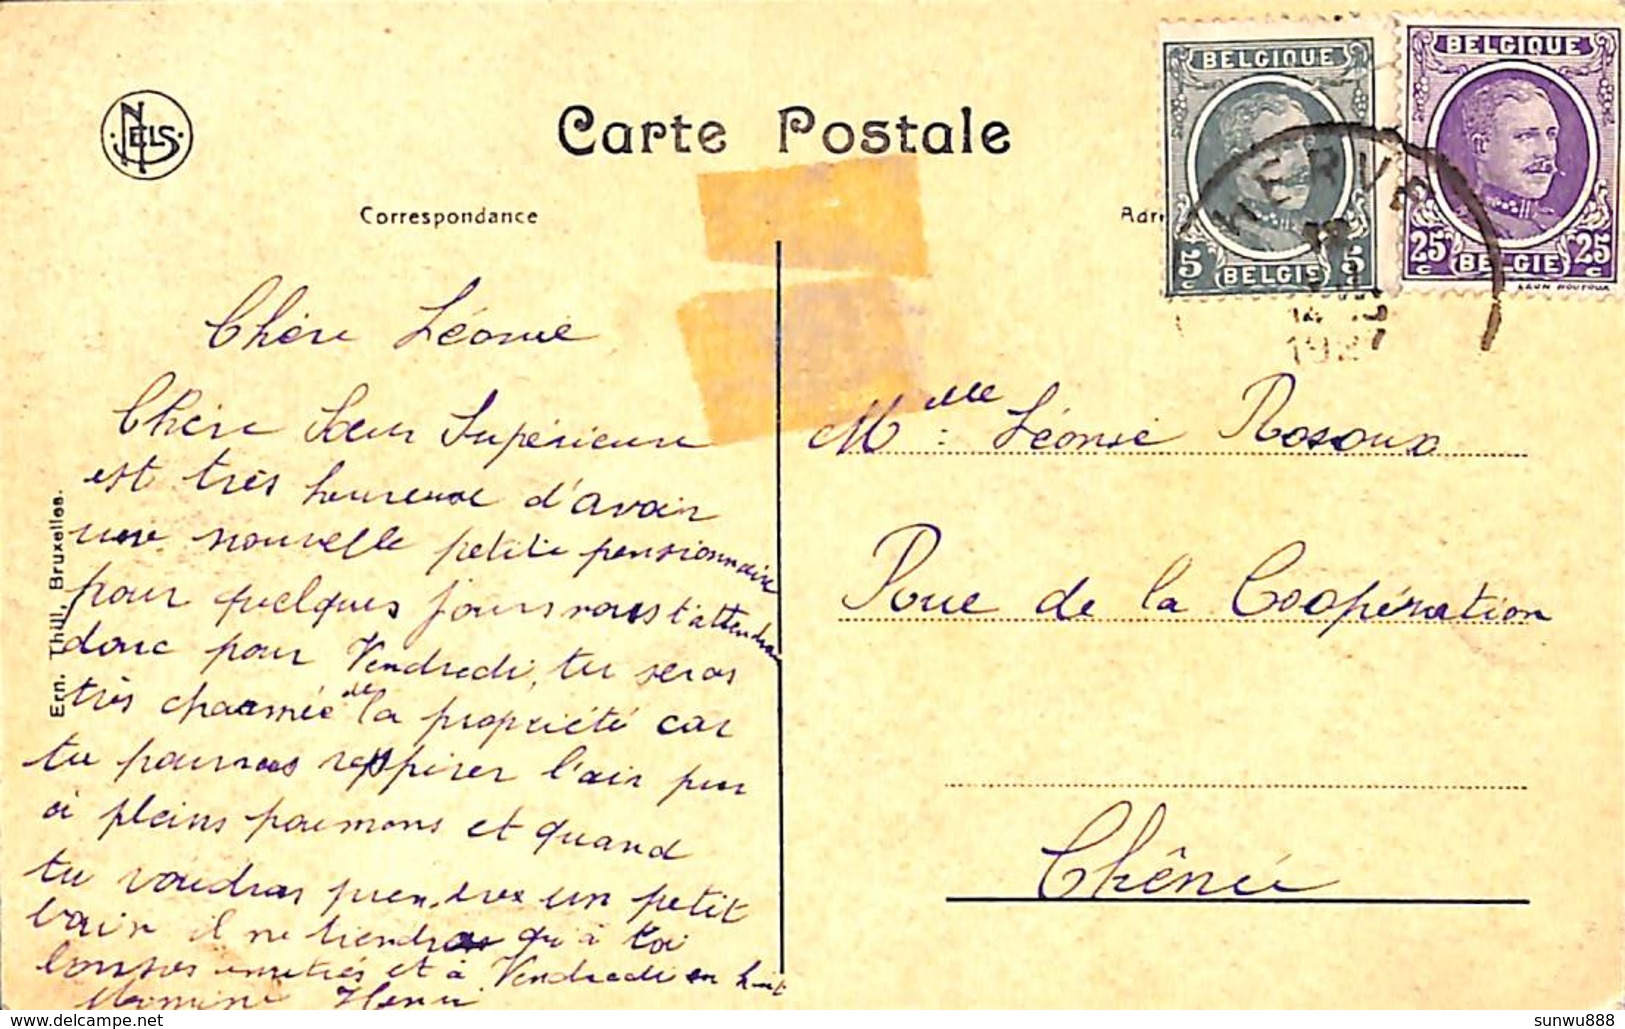 NELS
Carte Postale
Correspondance
BELGIQUE
5 c 5 c
BELGIË
BELGIQUE
25 c 25 c
BELGIË
HERVE
1927
Ern. Thill, Bruxelles.
Chère Léonie
Chère Sœur Supérieure
est très heureuse d'avoir
une nouvelle petite pensionnaire
pour quelques jours nous t'attendons
donc pour Vendredi, tu seras
très charmée de la propriété car
tu pourras respirer l'air pur
à pleins poumons et quand
tu voudras prendre un petit
bain il ne tiendra qu'à toi
bonnes amitiés et à Vendredi en huit
Henri
Melle : Léonie Rosoux
Rue de la Coopération
Chênée
sunwu888